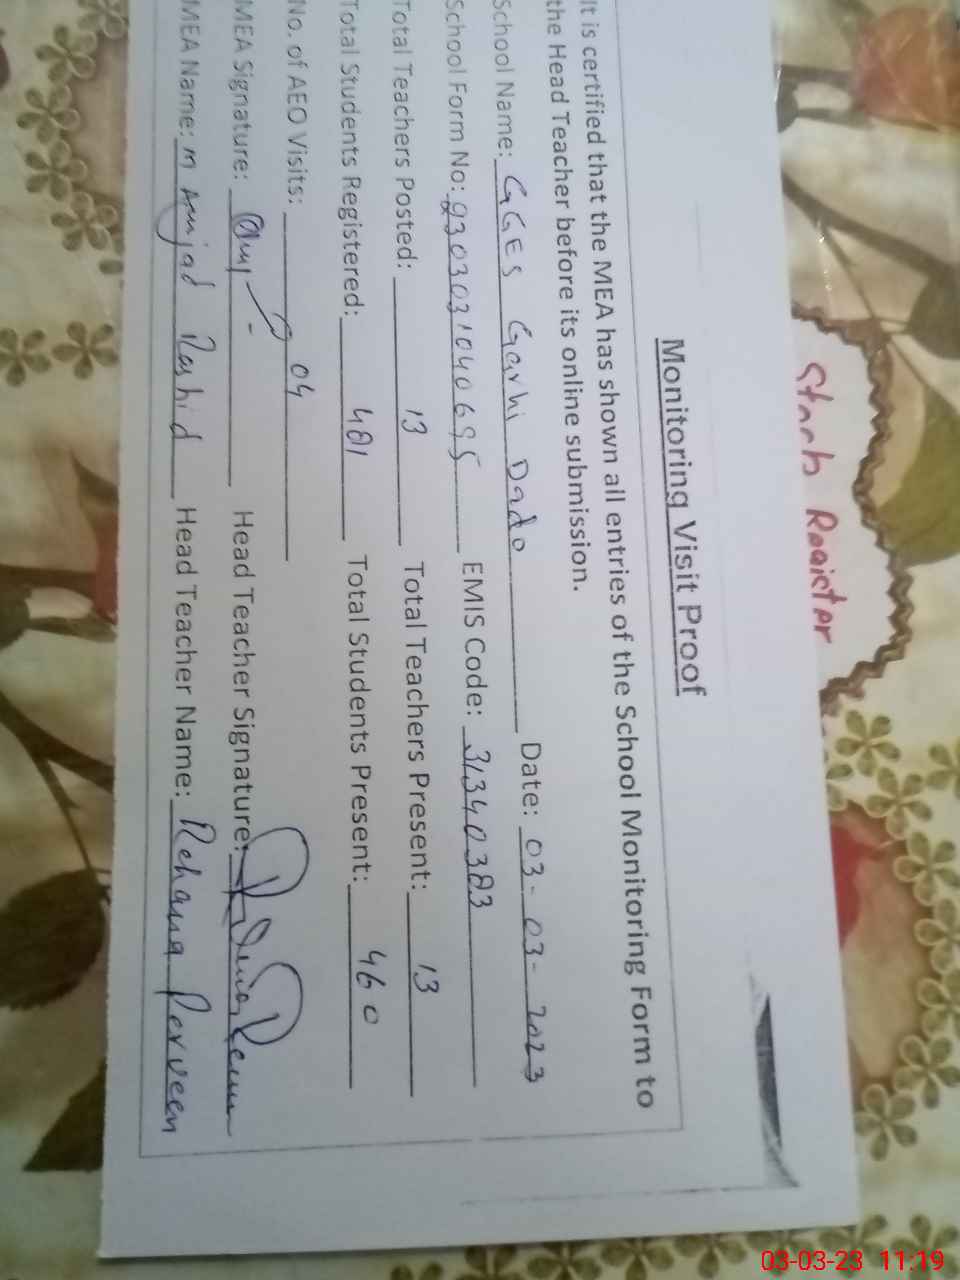 Stock Register
Monitoring Visit Proof
It is certified that the MEA has shown all entries of the School Monitoring Form to
the Head Teacher before its online submission.
School Name: GGES Garhi Dado Date: 03-03-2023
School Form No: EMIS Code: 31340383
Total Teachers Posted: 13 Total Teachers Present: 13
Total Students Registered: 481 Total Students Present: 460
No. of AEO Visits: 04
MEA Signature: Head Teacher Signature:
MEA Name: M Amjad Rashid Head Teacher Name: Rehana Perveen
03-03-23 11:19